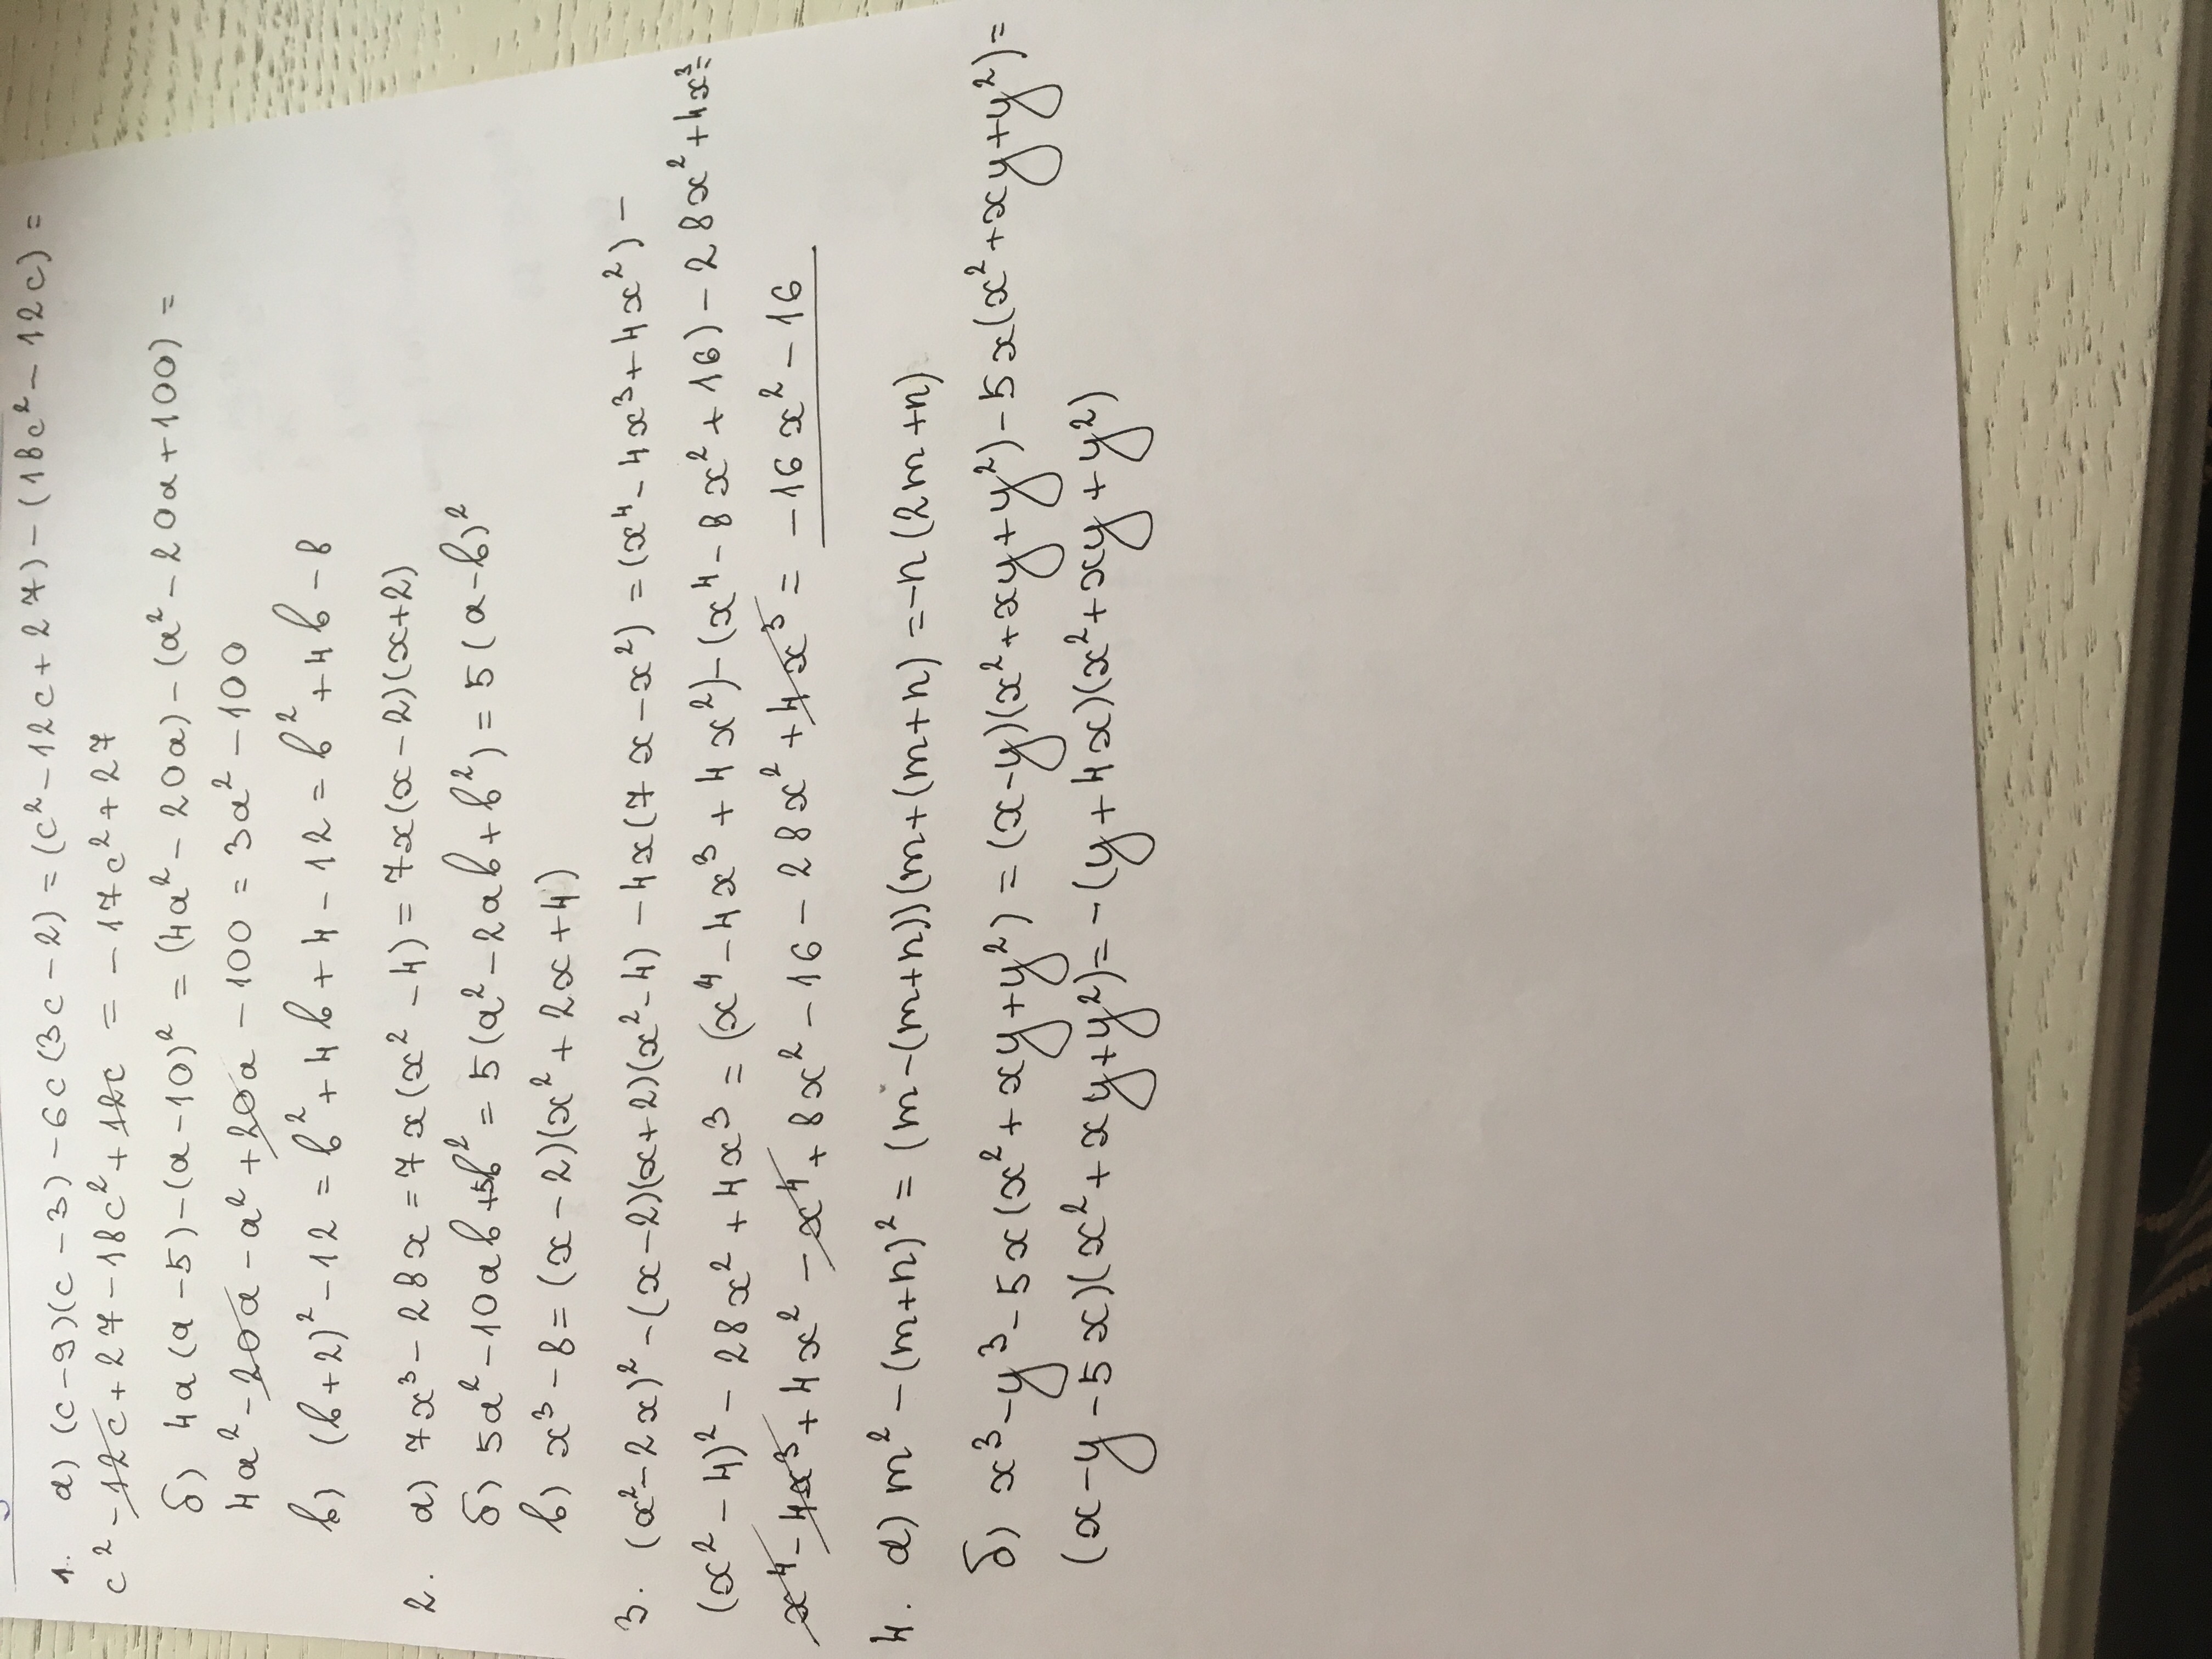 1. а) (c-9)(c-3)-6c(3c-2)=(c²-12c+27)-(18c²-12c)=
c²-12c+27-18c²+12c=-17c²+27
б) 4a(a-5)-(a-10)²=(4a²-20a)-(a²-20a+100)=
4a²-20a-a²+20a-100=3a²-100
в) (b+2)²-12=b²+4b+4-12=b²+4b-8
2. а) 7x³-28x=7x(x²-4)=7x(x-2)(x+2)
б) 5a²-10ab+5b²=5(a²-2ab+b²)=5(a-b)²
в) x³-8=(x-2)(x²+2x+4)
3. (x²-2x)²-(x-2)(x+2)(x²-4)-4x(7x-x²)=(x⁴-4x³+4x²)-
(x²-4)²-28x²+4x³=(x⁴-4x³+4x²)-(x⁴-8x²+16)-28x²+4x³=
x⁴-4x³+4x²-x⁴+8x²-16-28x²+4x³=-16x²-16
4. а) m²-(m+n)²=(m-(m+n))(m+(m+n)=-n(2m+n)
б) x³-y³-5x(x²+xy+y²)=(x-y)(x²+xy+y²)-5x(x²+xy+y²)=
(x-y-5x)(x²+xy+y²)=-(y+4x)(x²+xy+y²)